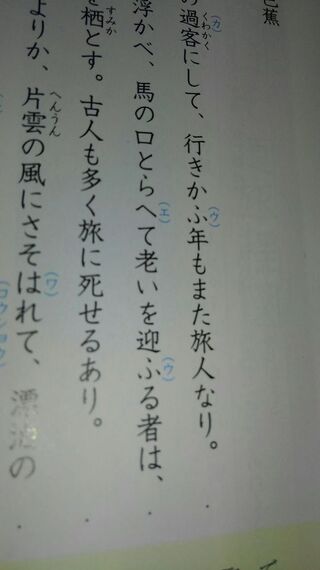 芭蕉
過客にして、行きかふ年もまた旅人なり。
くわかく
(カ)
(ウ)
浮かべ、馬の口とらへて老いを迎ふる者は、
(エ)
(ウ)
栖とす。古人も多く旅に死せるあり。
すみか
よりか、片雲の風にさそはれて、漂泊の
へんうん
(ワ)